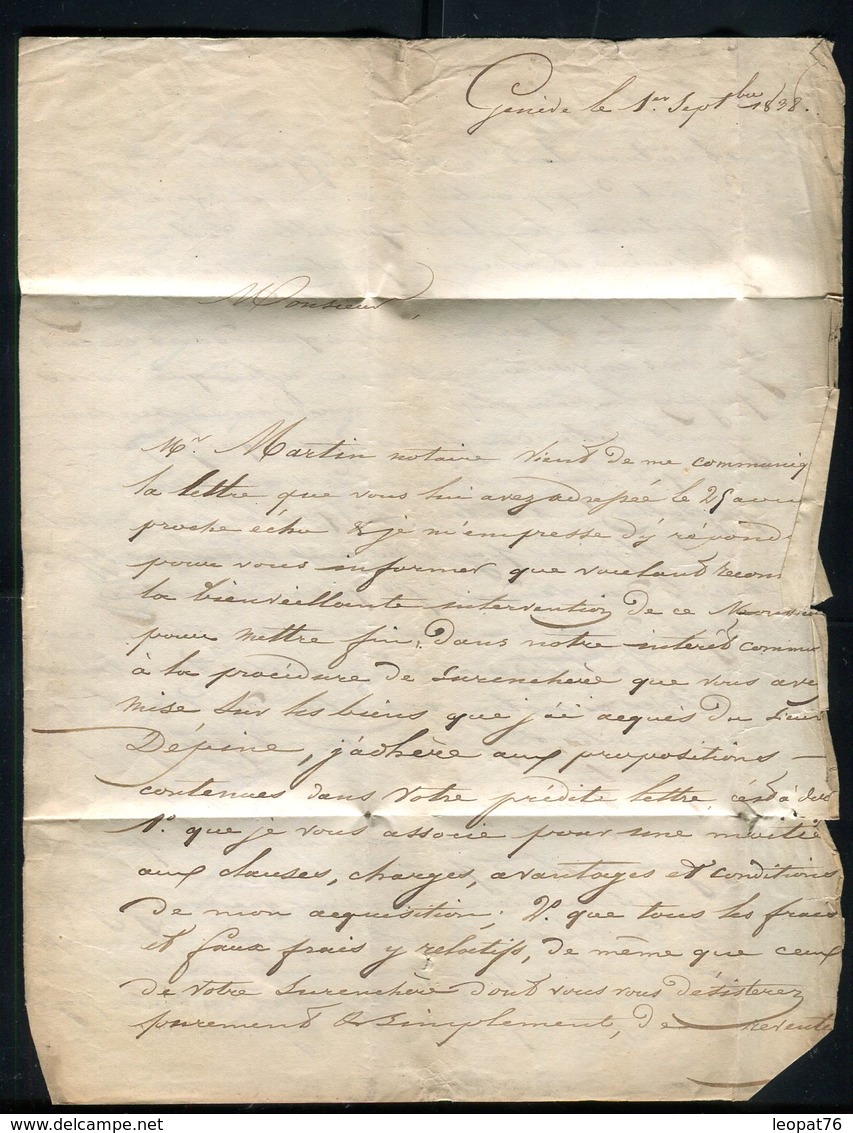 Genève le 1er Septbre 1838.
Monsieur,
Mr. Martin notaire vient de me communiq
la lettre que vous lui avez adressée le 25 aout
proche échu & je m'empresse d'y répond
pour vous informer que voulant recon
la bienveillante intervention de ce Monsieu
pour mettre fin, dans notre intérêt commu
à la procédure de surenchère que vous ave
mise sur les biens que j'ai acquis du Sieur
Dépine, j'adhère aux propositions —
contenues dans votre prédite lettre, c'est à dire
1º. que je vous associe pour une moitié
aux clauses, charges, avantages et conditions
de mon acquisition; 2º. que tous les frais
et faux frais y relatifs, de même que ceux
de votre surenchère dont vous vous désisterez
purement & simplement, de revente
leopat76